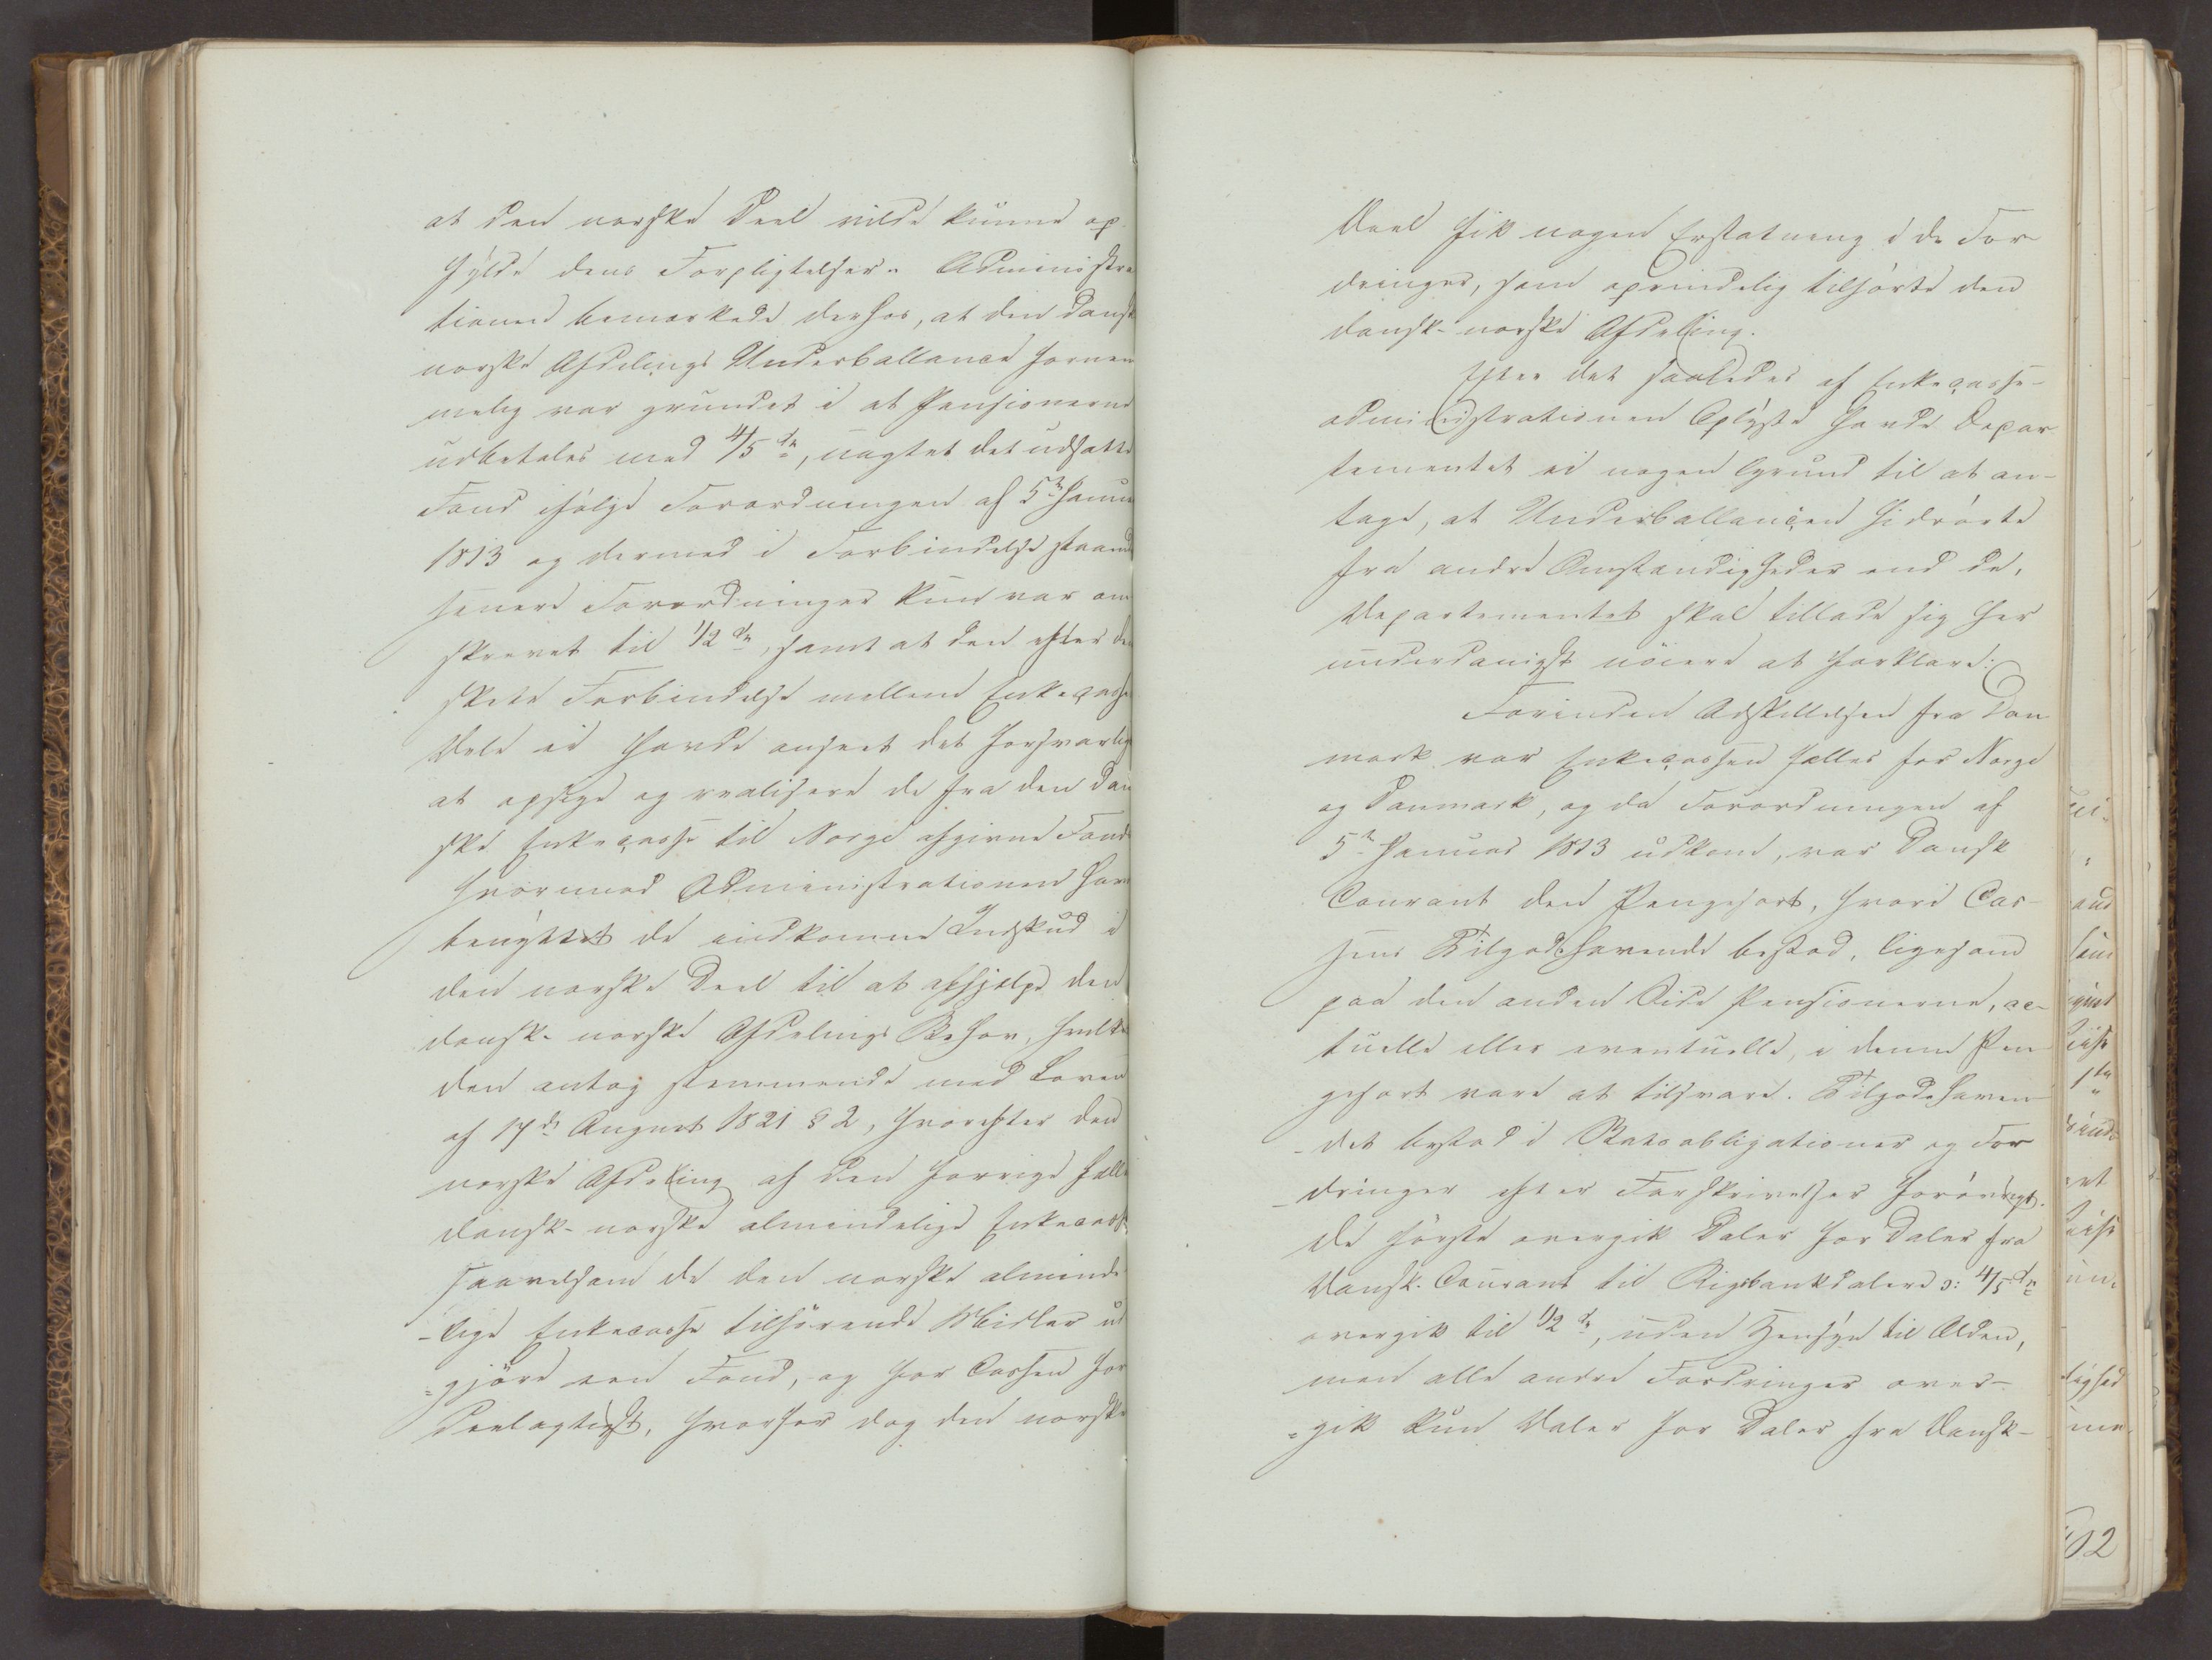 at den norske Deel vilde kunne op-
fylde dens Forpligtelser. Administra
tionen bemærkede derhos, at den dansk
norske Afdelings Underballance fornem
melig var grundet i at Pensionerne
udbetales med 4/5 de, uagtet det udsatte
Fond ifølge Forordningen af 5te Januar
1813 og dermed i Forbindelse staaende
senere Forordninger kun var om
skrevet til 1/2 de, samt at den efter den
skete Forbindelse mellem Enkecasse
Dele ei havde anseet det forsvarligt
at opsige og realisere de fra den dan
ske Enkecasse til Norge afgivne Fonds
hvorimod Administrationen har
benyttet de indkomne Indskud i
den norske Deel til at afhjælpe den
dansk-norske Afdelings Behov, hvilket
den antog stemmende med Loven
af 17de August 1821 § 2, hvorefter den
norske Afdeling af den forrige fælles
dansk-norske almindelige Enkecasse
saavelsom de den norske alminde
-lige Enkecasse tilhørende Midler ud
=gjøre een Fond, og for Cassen for
Deelagtigst, hvorfor dog den norske
Deel fik nogen Erstatning i de For
dringer, som oprindelig tilhørte den
dansk-norske Afdeling.
Efter det saaledes af Enkecasse-
administrationen Oplyste havde Depar
tementet ei nogen Grund til at an-
tage, at Underballancen hidrørte
fra andre Omstændigheder end de,
Departementet skal tillade sig her
underdanigst nøiere at forklare:
Forinden Adskillelsen fra Dan
mark var Enkecassen fælles for Norge
og Danmark, og da Forordningen af
5te Januar 1813 udkom, var Dansk
Courant den Pengesort, hvori Cas-
sens Tilgodehavende bestod, ligesom
paa den anden Side Pensionerne, ac-
tuelle eller eventuelle, i denne Pen
gesort vare at tilsvare. Tilgodehaven
-det bestod i Statsobligationer og For
-dringer efter Forskrivelser forøvrigt.
De første overgik Daler for Daler fra
Dansk Courant til Rigsbankdalere ɔ: 4/5 de
overgik til 1/2 de, uden Hensyn til Alder,
men alle andre Fordringer over-
=gik kun Daler for Daler fra Dansk-